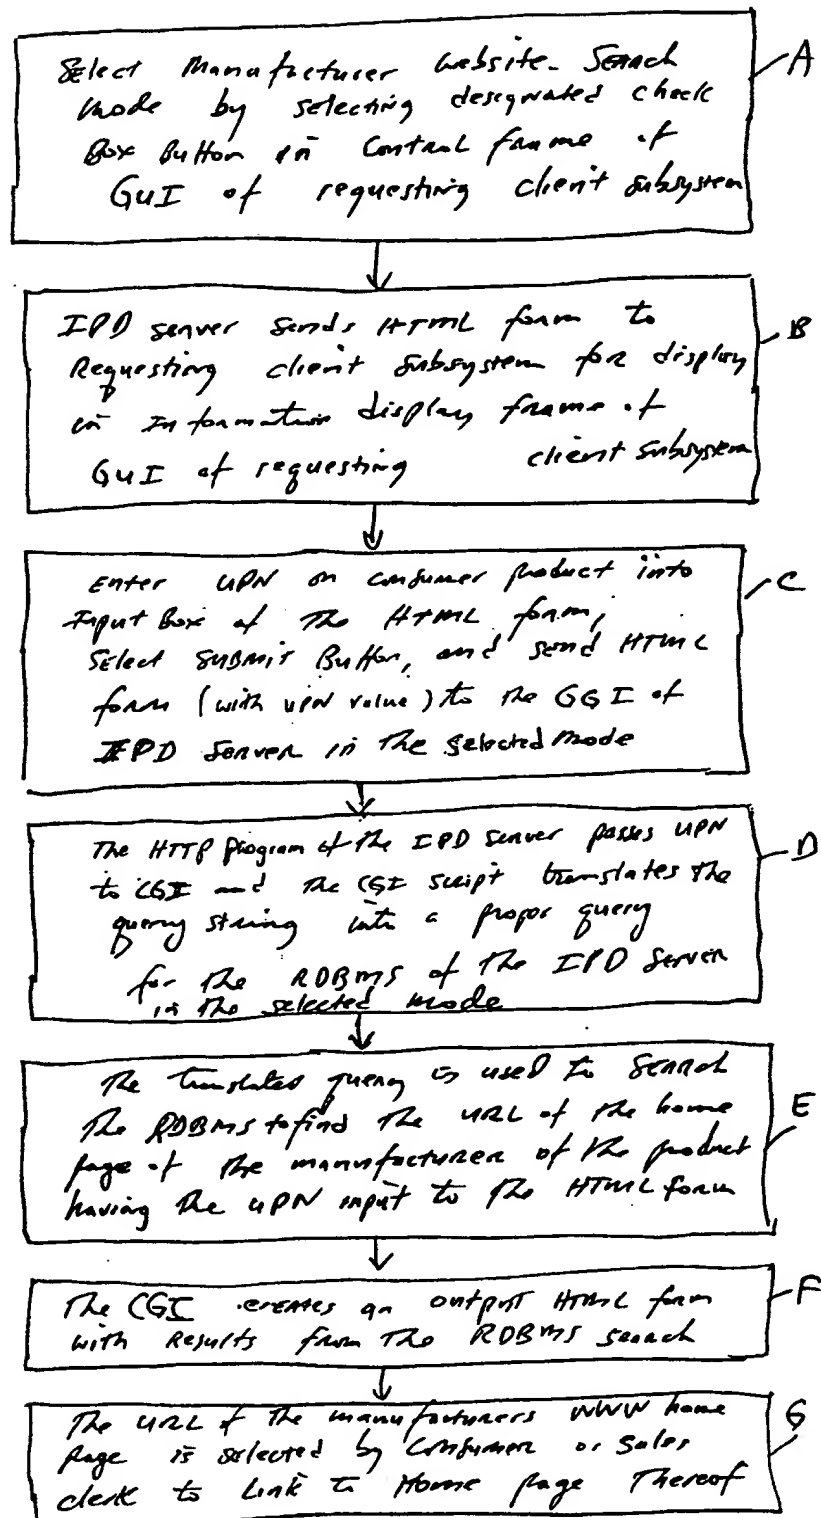 Select Manufacturer Website-Search
Mode by selecting designated check
Box Button in Control frame of
GUI of requesting client subsystem
A
IPD server sends HTML form to
Requesting client subsystem for display
in Information display frame of
GUI of requesting client subsystem
B
Enter UPN on consumer product into
Input Box of The HTML form,
Select SUBMIT Button, and send HTML
form (with UPN value) to the GGI of
IPD Server in the selected mode
C
The HTTP program of the IPD Server passes UPN
to CGI and the CGI script translates the
query string into a propor query
for the RDBMS of the IPD Server
in the selected mode
D
The translated query is used to Search
The RDBMS to find the URL of the home
page of the manufacturer of the product
having the UPN input to the HTML form
E
The CGI creates an output HTML form
with Results from the RDBMS search
F
The URL of the manufacturers WWW home
Page is selected by Consumer or Sales
clerk to Link to Home page Thereof
G